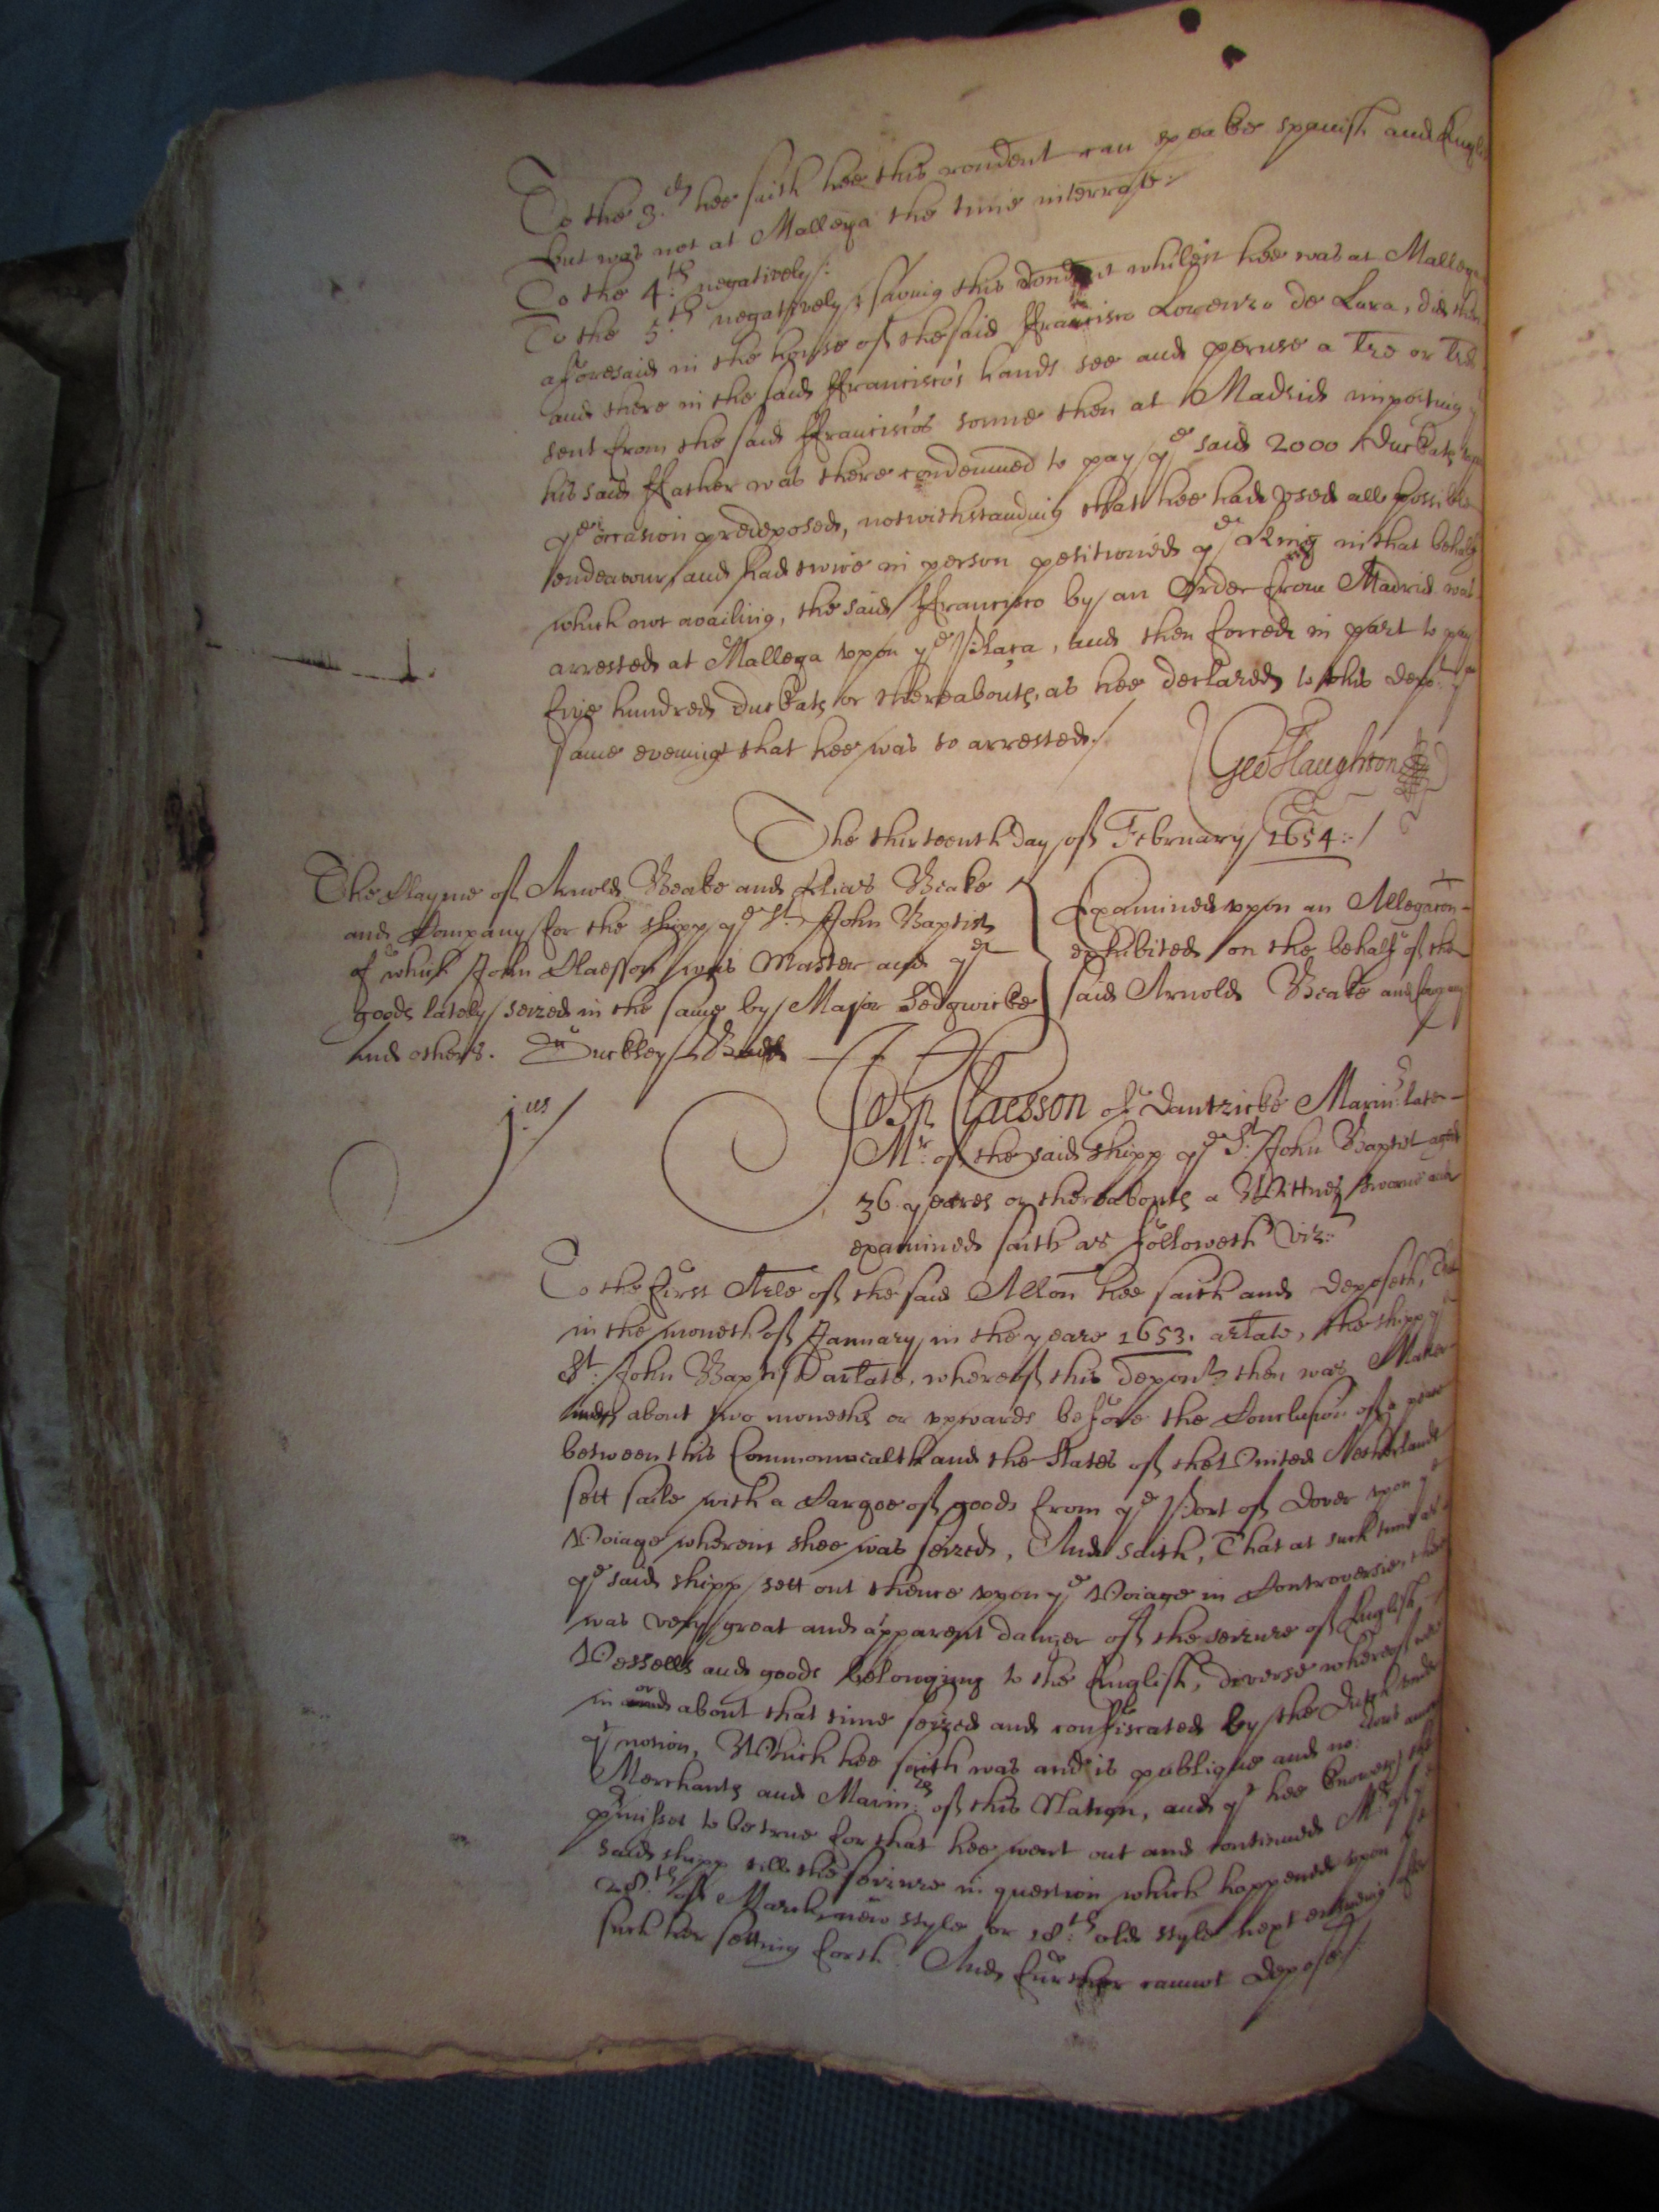 To the 3.d hee saith hee this rondent can speake spanish and English
but was not at Mallega the time interrate:
To the 4:th negatively/:
To the 5.th negatively, saving this rondent whilest hee was at Mallega
aforesaid in the house of the said ffrancisco Lorenzo de Lara, did then
and there in the said ffrancisco's hands see and peruse a Tre or Tres
sent from the said ffrancisco's sonne then at Madrid importing yt
his said ffather was there condemned to pay ye said 2000 Duckats upon
ye occasion predeposed, notwithstanding that hee had used all possible
endeavour and had twice in person petitioned ye King in that behalf
which not availing, the said ffrancisco by an Order from Madrid was
arrested at Mallega upon ye Plaça, and then forced in part to pay
five hundred Duckats or thereabouts, as hee declared to this depot ye
same evening that hee was so arrested./
Geo Haughton
The thirteenth day of February 1654:/
The Clayme of Arnold Beake and Elias Beake
and Company for the shipp ye St. John Baptist
of which John Claesson was Master and ye
goods lately seized in the same by Major Sedgwicke
and others. Suckley Budd
Examined upon an Allegacon
exhibited on the behalf of the
said Arnold Beake and Company
j.us/
John Claesson of Dantzicke Marinr late
Mr: of the said shipp ye St. John Baptist aged
36 yeares or thereabouts a Wittnes sworne and
examined saith as followeth Viz:
To the first Arle of the said Allon hee saith and deposeth, That
in the moneth of January in the yeare 1653. arlate, the shipp ye
St: John Baptist arlate, whereof this depont then was Master
about two moneths or upwards before the Conclusion of a peace
between this Commonwealth and the States of the United Netherlands
sett saile with a Cargoe of goods from ye Port of Dover upon ye
Voiage wherein shee was seized, And saith, That at such time as
ye said shipp sett out thence upon ye Voiage in Controversie, there
was very great and apparent danger of the seizure of English
Vessells and goods belonging to the English, diverse whereof were
in or about that time seized and confiscated by the Dutch under
yt notion, Which hee saith was and is publique and no:
Merchants and Marin:rs of this Nation, and yt hee knoweth the
pmisses to be true for that hee went out and continued Mr of ye
said shipp till the seizure in question which happened upon ye
28:th of March new style or 18:th old style next ensueing after
such her setting forth. And further cannot depose/: